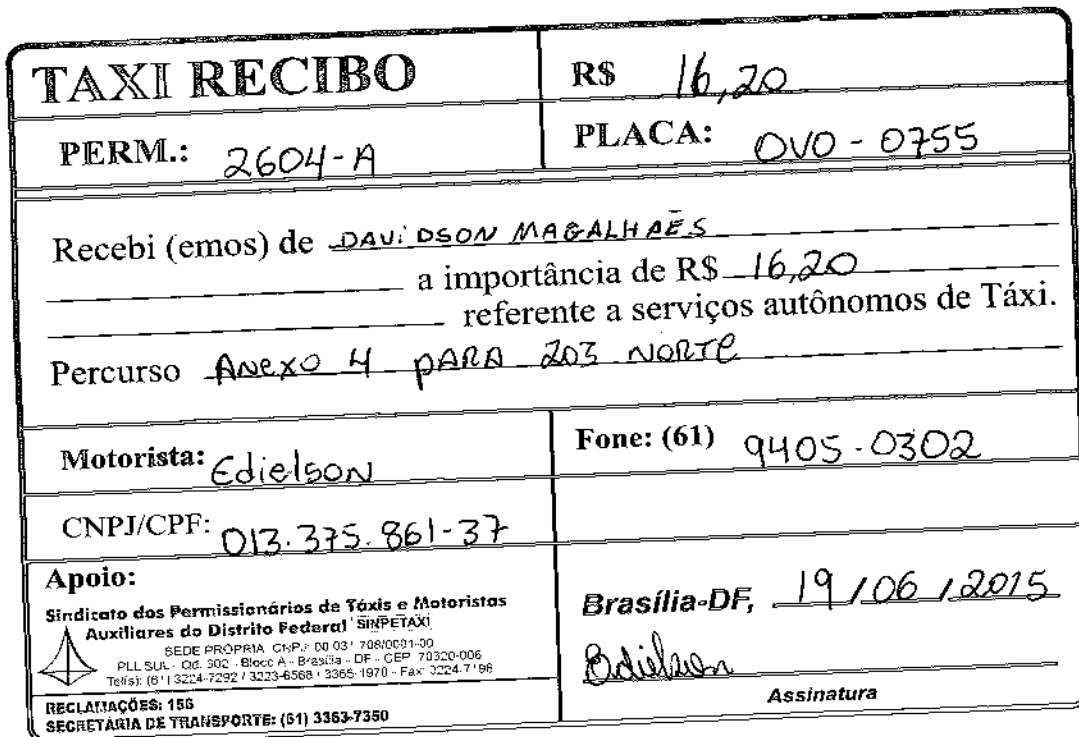 TAXI RECIBO
R$ 16,20
PERM.: 2604-A
PLACA: OVO - 0755
Recebi (emos) de DAViDSON MAGALHÃES
a importância de R$ 16,20
referente a serviços autônomos de Táxi.
Percurso Anexo 4 pARA 203 NORTE
Motorista: Edielson
Fone: (61) 9405-0302
CNPJ/CPF: 013.375.861-37
Apoio:
Sindicato dos Permissionários de Táxis e Motoristas
Auxiliares do Distrito Federal SINPETAXI
SEDE PROPRIA CNPJ 00 031 708/0001-00
PLL SUL - Qd. 302 - Bloco A - Brasília - DF - CEP 70320-006
Tel(s): (61) 3224-7292 / 3223-6568 / 3365-1970 - Fax: 3224-7196
RECLAMAÇÕES: 156
SECRETARIA DE TRANSPORTE: (61) 3363-7350
Brasília-DF, 19/06/2015
Edielson
Assinatura